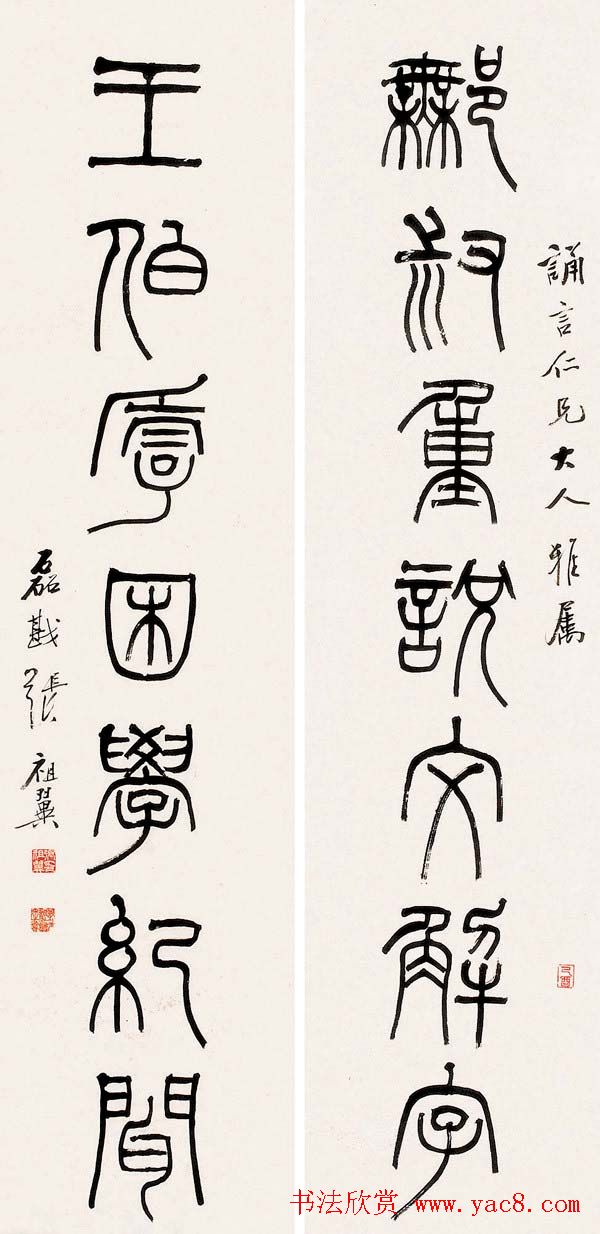 鄦叔重說文解字
誦言仁兄大人雅属
己酉
王伯厚困學紀聞
磊戡張祖翼
书法欣赏 www.yac8.com